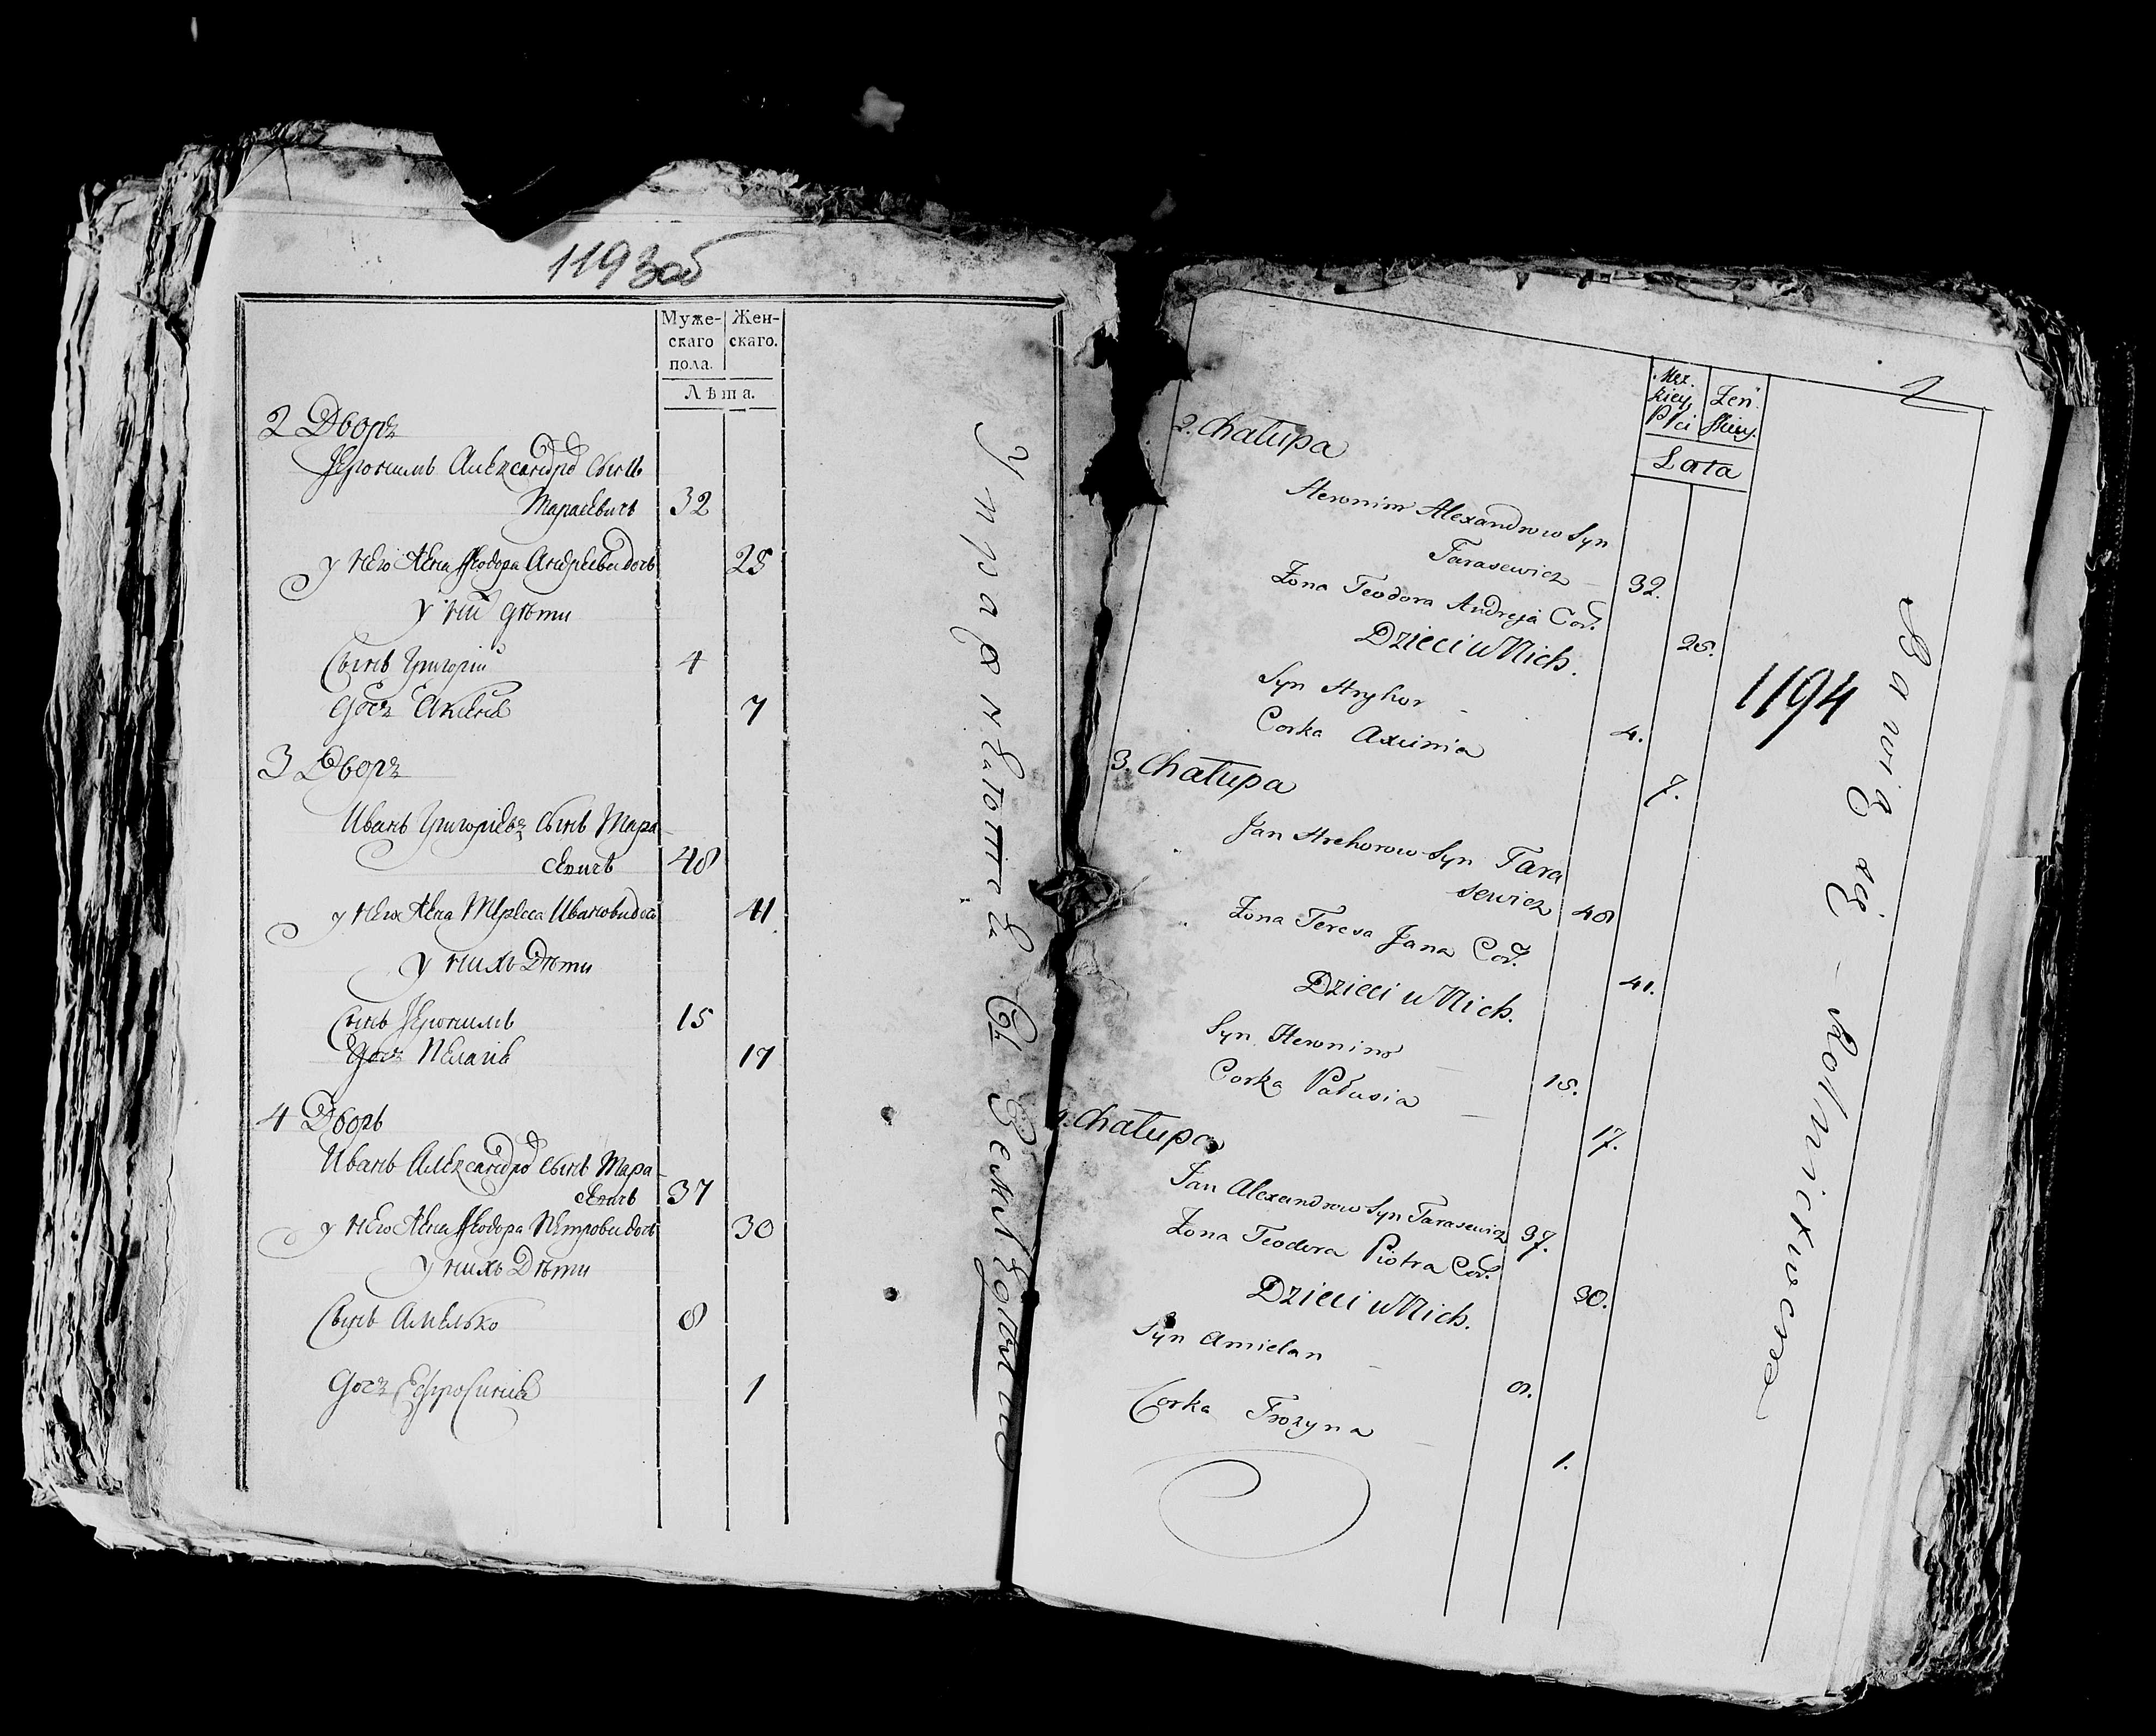 1193об
Муже-
скаго
пола.
Жен-
скаго.
Лѣта.
2 Дворъ
Іеронимъ Александро сынъ
Тарасевичъ 32
у него жена Ѳеодора Андреева дочь 25
у них дѣти
Сынъ Григорій 4
Дочь Аксиния 7
3 Дворъ
Иванъ Григоріевъ сынъ Тара
севичъ 48
у него жена Тереса Иванова дочь 41
у нихъ Дѣти
Сынъ Іеронимъ 15
Дочь Пелагия 17
4 Дворъ
Иванъ Александро сынъ Тара-
севичъ 37
у него жена Ѳеодора Петрова дочь 30
у нихъ Дѣти
Сынъ Амелько 8
Дочь Ефросиния 1
2
Męz.
kiey
Płci
Zeń
skiey.
Lata
2. Chałupa
Heronim Alexandrow Syn
Tarasewicz 32.
Żona Teodora Andreja Cor. 25.
Dzieci u Nich.
Syn Hryhor 4.
Corka Axinia 7.
3. Chałupa
Jan Hrehorow Syn Tara
sewicz 48
Żona Teresa Jana Cor. 41.
Dzieci u Nich.
Syn Heronim 15.
Corka Pałusia 17.
4. Chałupa
Jan Alexandrow Syn Tarasewicz 37.
Żona Teodora Piotra Cor. 30.
Dzieci u Nich.
Syn Amielan 8.
Corka Frozyna 1.
1194
Bawią się - Rolnictwem